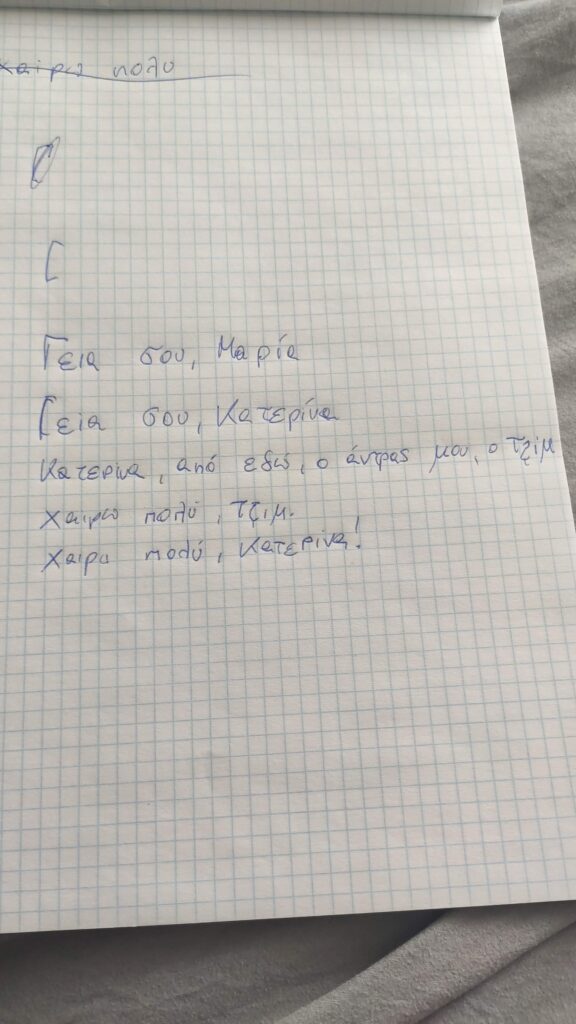 χαίρω πολυ
Γεια σου, Μαρία
Γεια σου, Κατερίνα
Κατερινα, από εδώ, ο άντρας μου, ο Τζιμ
Χαιρω πολύ, Τζιμ.
Χαιρω πολύ, Κατερίνα!